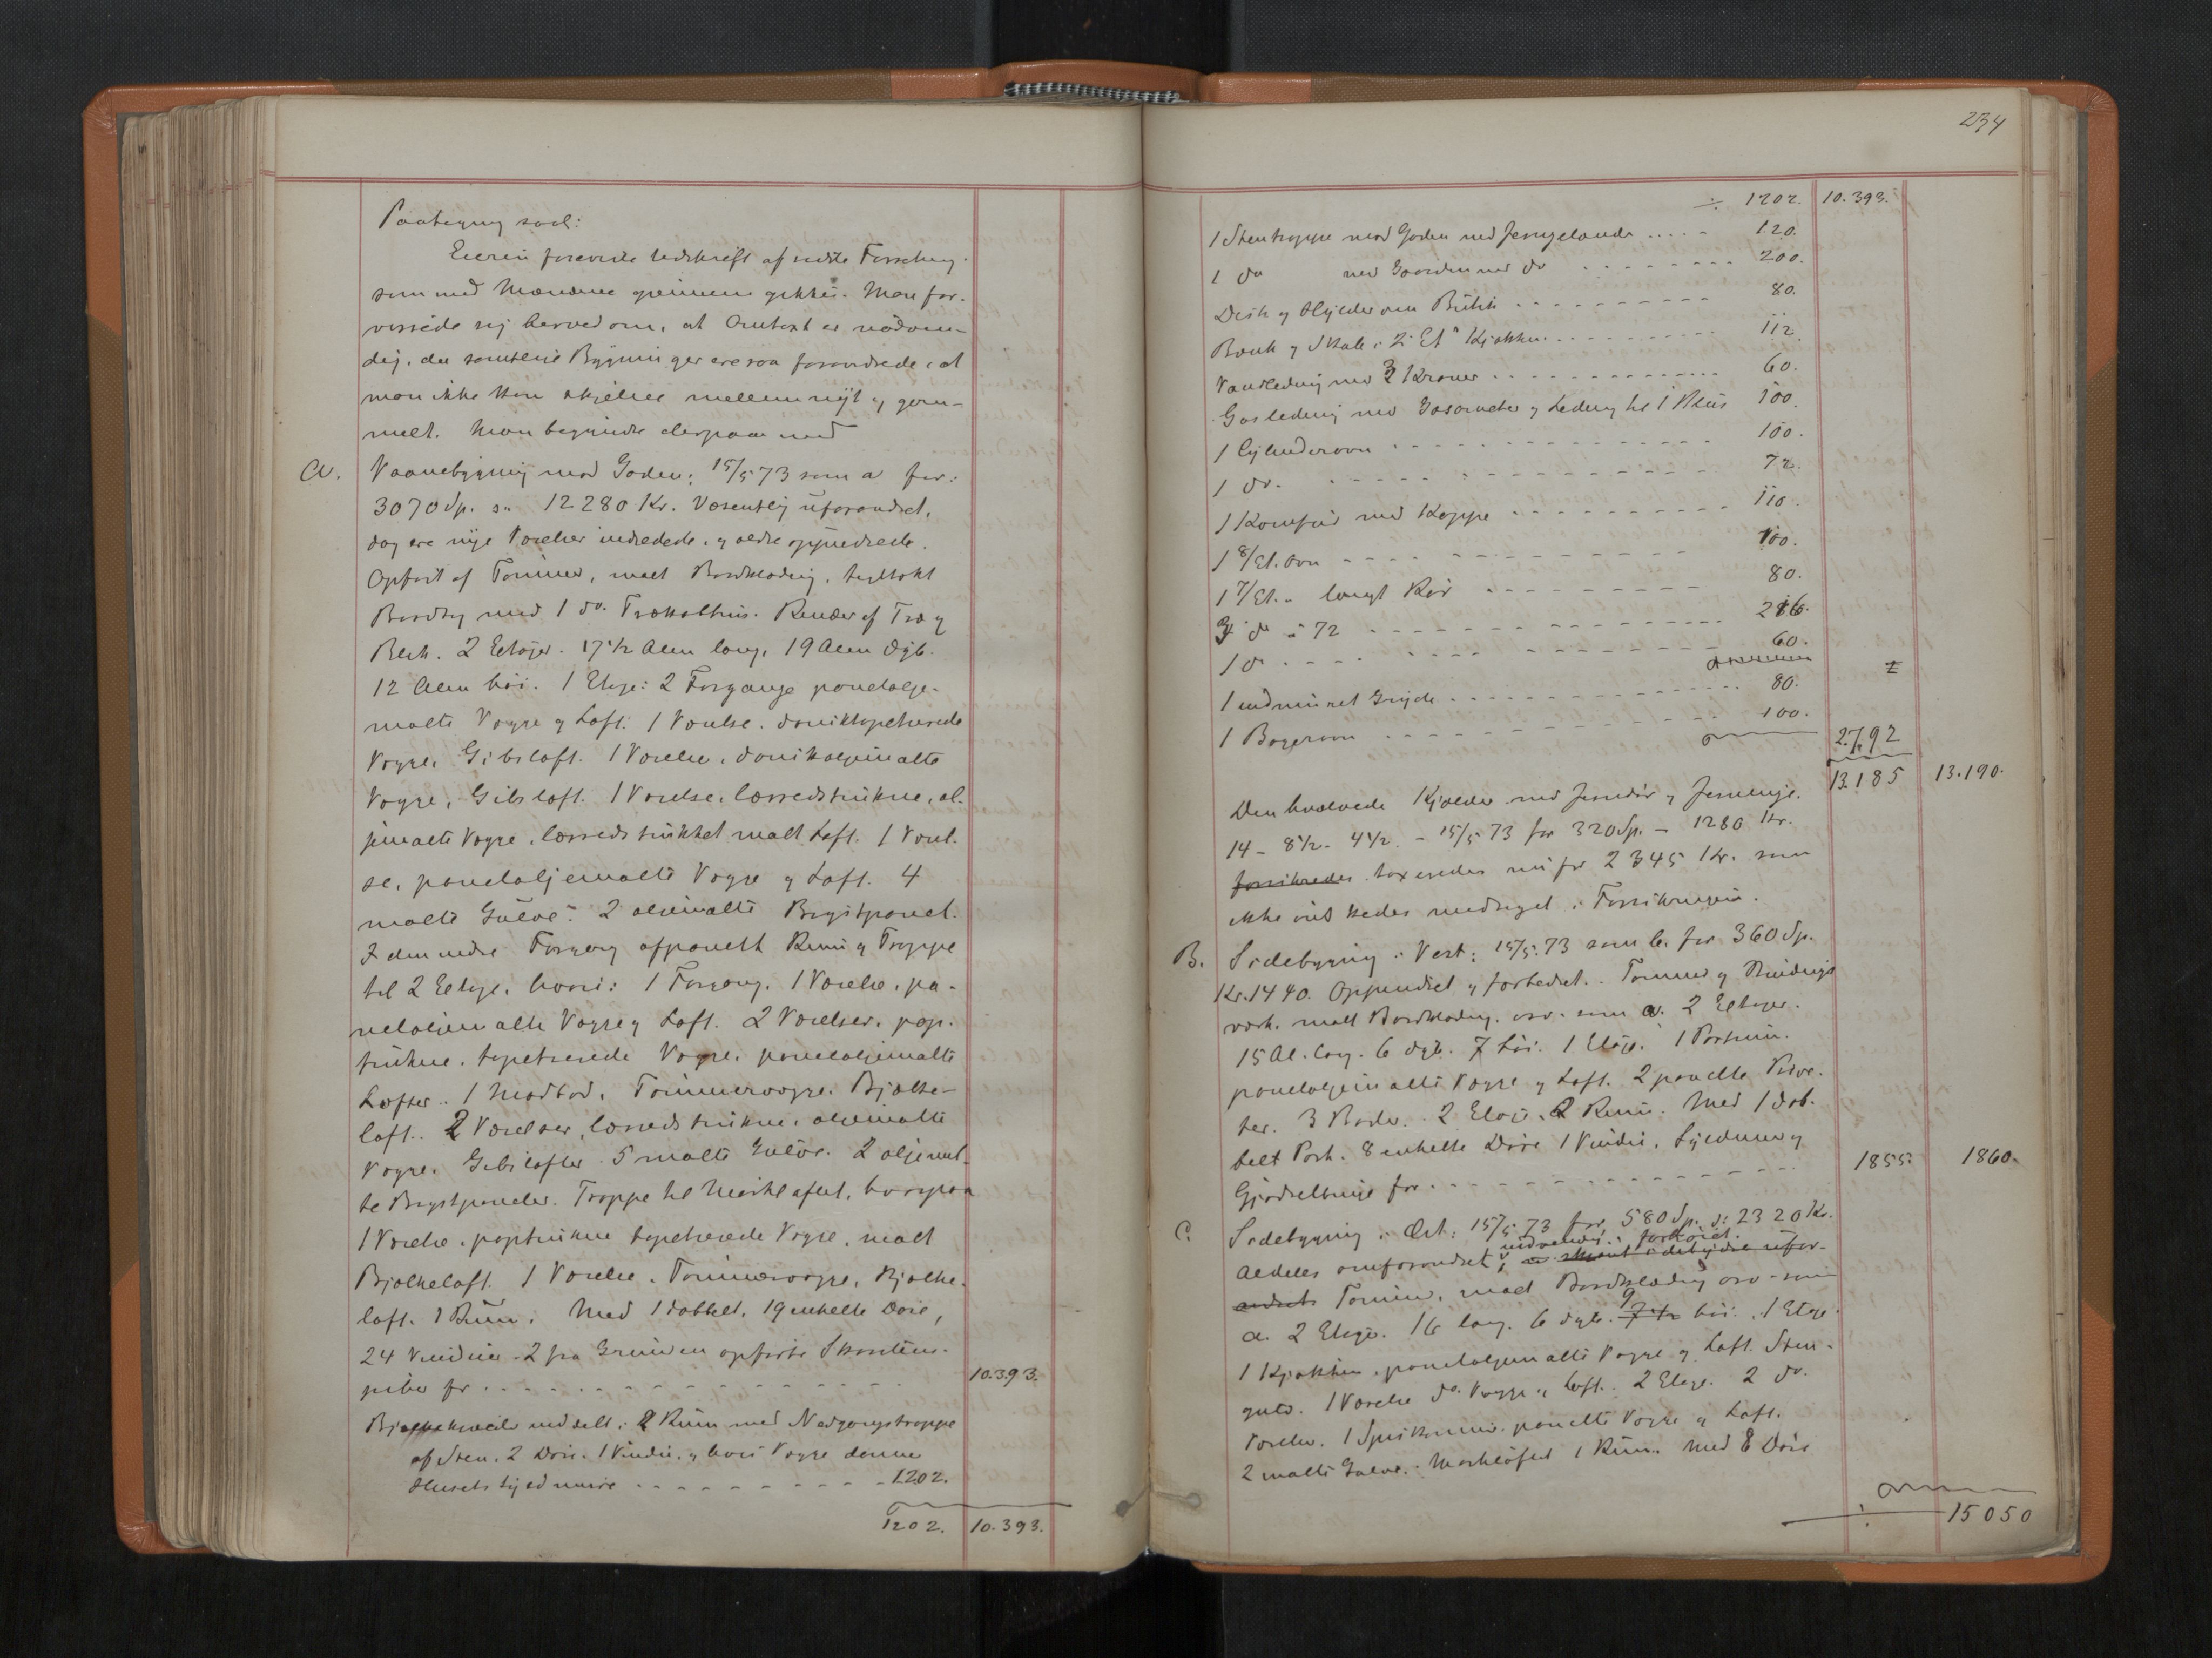 Paategning saal:
Eieren foreviste Udskrift af sidste Forretning
som med Mændene gjennemgikkes. Man for-
vissede sig herved om, at Omtaxt er nødven-
dig, da samtlige Bygninger ere saa forandrede, at
man ikke kan skjelne mellem nyt og gam-
melt. Man begyndte derpaa med
A. Vaanebygning mod Gaden: 15/5 73 som a for:
3070 Sp. = 12280 Kr. Væsentlig uforandret,
dog ere nye Værelser indredede, og ældre oppudsede.
Opført af Tømmer, malt Bordklædning, tegltækt
Bordtag med 1 do. Trækathus. Render af Træ og
Blik. 2 Etager. 17 1/2 Alen lang, 19 Alen dyb.
12 Alen høi. 1 Etage: 2 Forgange paneloljе-
malte Vægge og Loft. 1 Værelse,
Vægge, Gibsloft. 1 Værelse,
Vægge, Gibsloft. 1 Værelse, lærredstrukne, ol-
jemalte Vægge, lærredstrukket malt Loft. 1 Værel-
se, paneloljemalte Vægge og Loft. 4
malte Gulve. 2 oljemalte Brystpanel.
I den nedre Forgang afpanelt Rum og Trappe
til 2 Etage, hvori: 1 Forgang, 1 Værelse, pa-
neloljemalte Vægge og Loft. 2 Værelser, pap-
trukne, tapetserede Vægge, paneloljemalte
Lofter. 1 Madbod, Tømmervægge, Bjælke-
loft. 2 Værelser, lærredstrukne, oljemalte
Vægge, Gibslofter. 5 malte Gulve. 2 oljemal-
te Brystpaneler. Trappe til Mørkloftet, hvorpaa
1 Værelse, paptrukne tapetserede Vægge, malt
Bjælkeloft. 1 Værelse, Tømmervægge, Bjælke-
loft. 1 Rum. Med 1 dobbelt, 19 enkelte Døre,
24 Vinduer. 2 fra Grunden opførte Skorstens-
piber for . . . . . 10.393.
Bjælkekjælder inddelt i 2 Rum med Nedgangstrappe
af Sten. 2 Døre. 1 Vindu, og hvis Vægge danne
Husets Syldmure . . . . . 1202.
1202. 10.393.
234
÷ 1202. 10.393.
1 Stentrappe mod Gaden med Jerngelænder . . . . . 120.
1 do mod Gaarden med do . . . . . 200.
Disk og Hylder om Butik . . . . . 80.
Bænk og Skab i 2 Et. Kjøkken . . . . . 112
Vandledning med 3 Kraner . . . . . 60.
Gasledning med Gasometer og Ledning til 1 Blus 100.
1 Cylinderovn . . . . . 100.
1 do. . . . . . 72.
1 Komfur med Kappe . . . . . 110.
1 8/Et. Ovn . . . . . 100.
1 7/Et. - langt Rør . . . . . 80.
3 do à 72 . . . . . 216.
1 do . . . . . 60.
1 indmuret Gryde . . . . . 80.
1 Bagerovn . . . . . 100.
2792
13.185 13.190.
Den hvælvede Kjælder med Jerndør og Jernvinge.
14 - 8 1/2 - 4 1/2 - 15/5 73 for 320 Sp. - 1280 Kr.
forsikredes taxeredes nu for 2345 Kr. som
ikke ønskedes medtaget i Forsikringen.
B. Sidebygning i Vest: 15/5. 73 som b. for 360 Sp.
Kr. 1440. Oppudset og forbedret. Tømmer og Bindings-
værk, malt Bordklædning. osv. som a. 2 Etager.
15 Al. lang. 6 dyb. 7 høi. 1 Etage. 1 Portrum.
paneloljemalte Vægge og Loft. 2 panelte Prive-
ter. 3 Boder. 2 Etage. 2 Rum. Med 1 dob-
belt Port. 8 enkelte Døre 1 Vindu, Syldmur og
Gjødselbinge for . . . . . 1855. 1860.
C. Sidebygning i Øst: 15/5 73 for 580 Sp. = 2320 Kr.
Aldeles omforandret indvendig, forhøiet.
Tømmer, malt Bordklædning osv. som
a. 2 Etager. 16 lang. 6 dyb. 9 høi. 1 Etage.
1 Kjøkken, paneloljemalte Vægge og Loft. Sten-
gulv. 1 Værelse do. Vægge og Loft. 2 Etage. 2 do.
Værelser. 1 Spiskammer, panelte Vægge og Loft.
2 malte Gulve. Mørkloftet 1 Rum. Med 8 Døre
÷ 15050